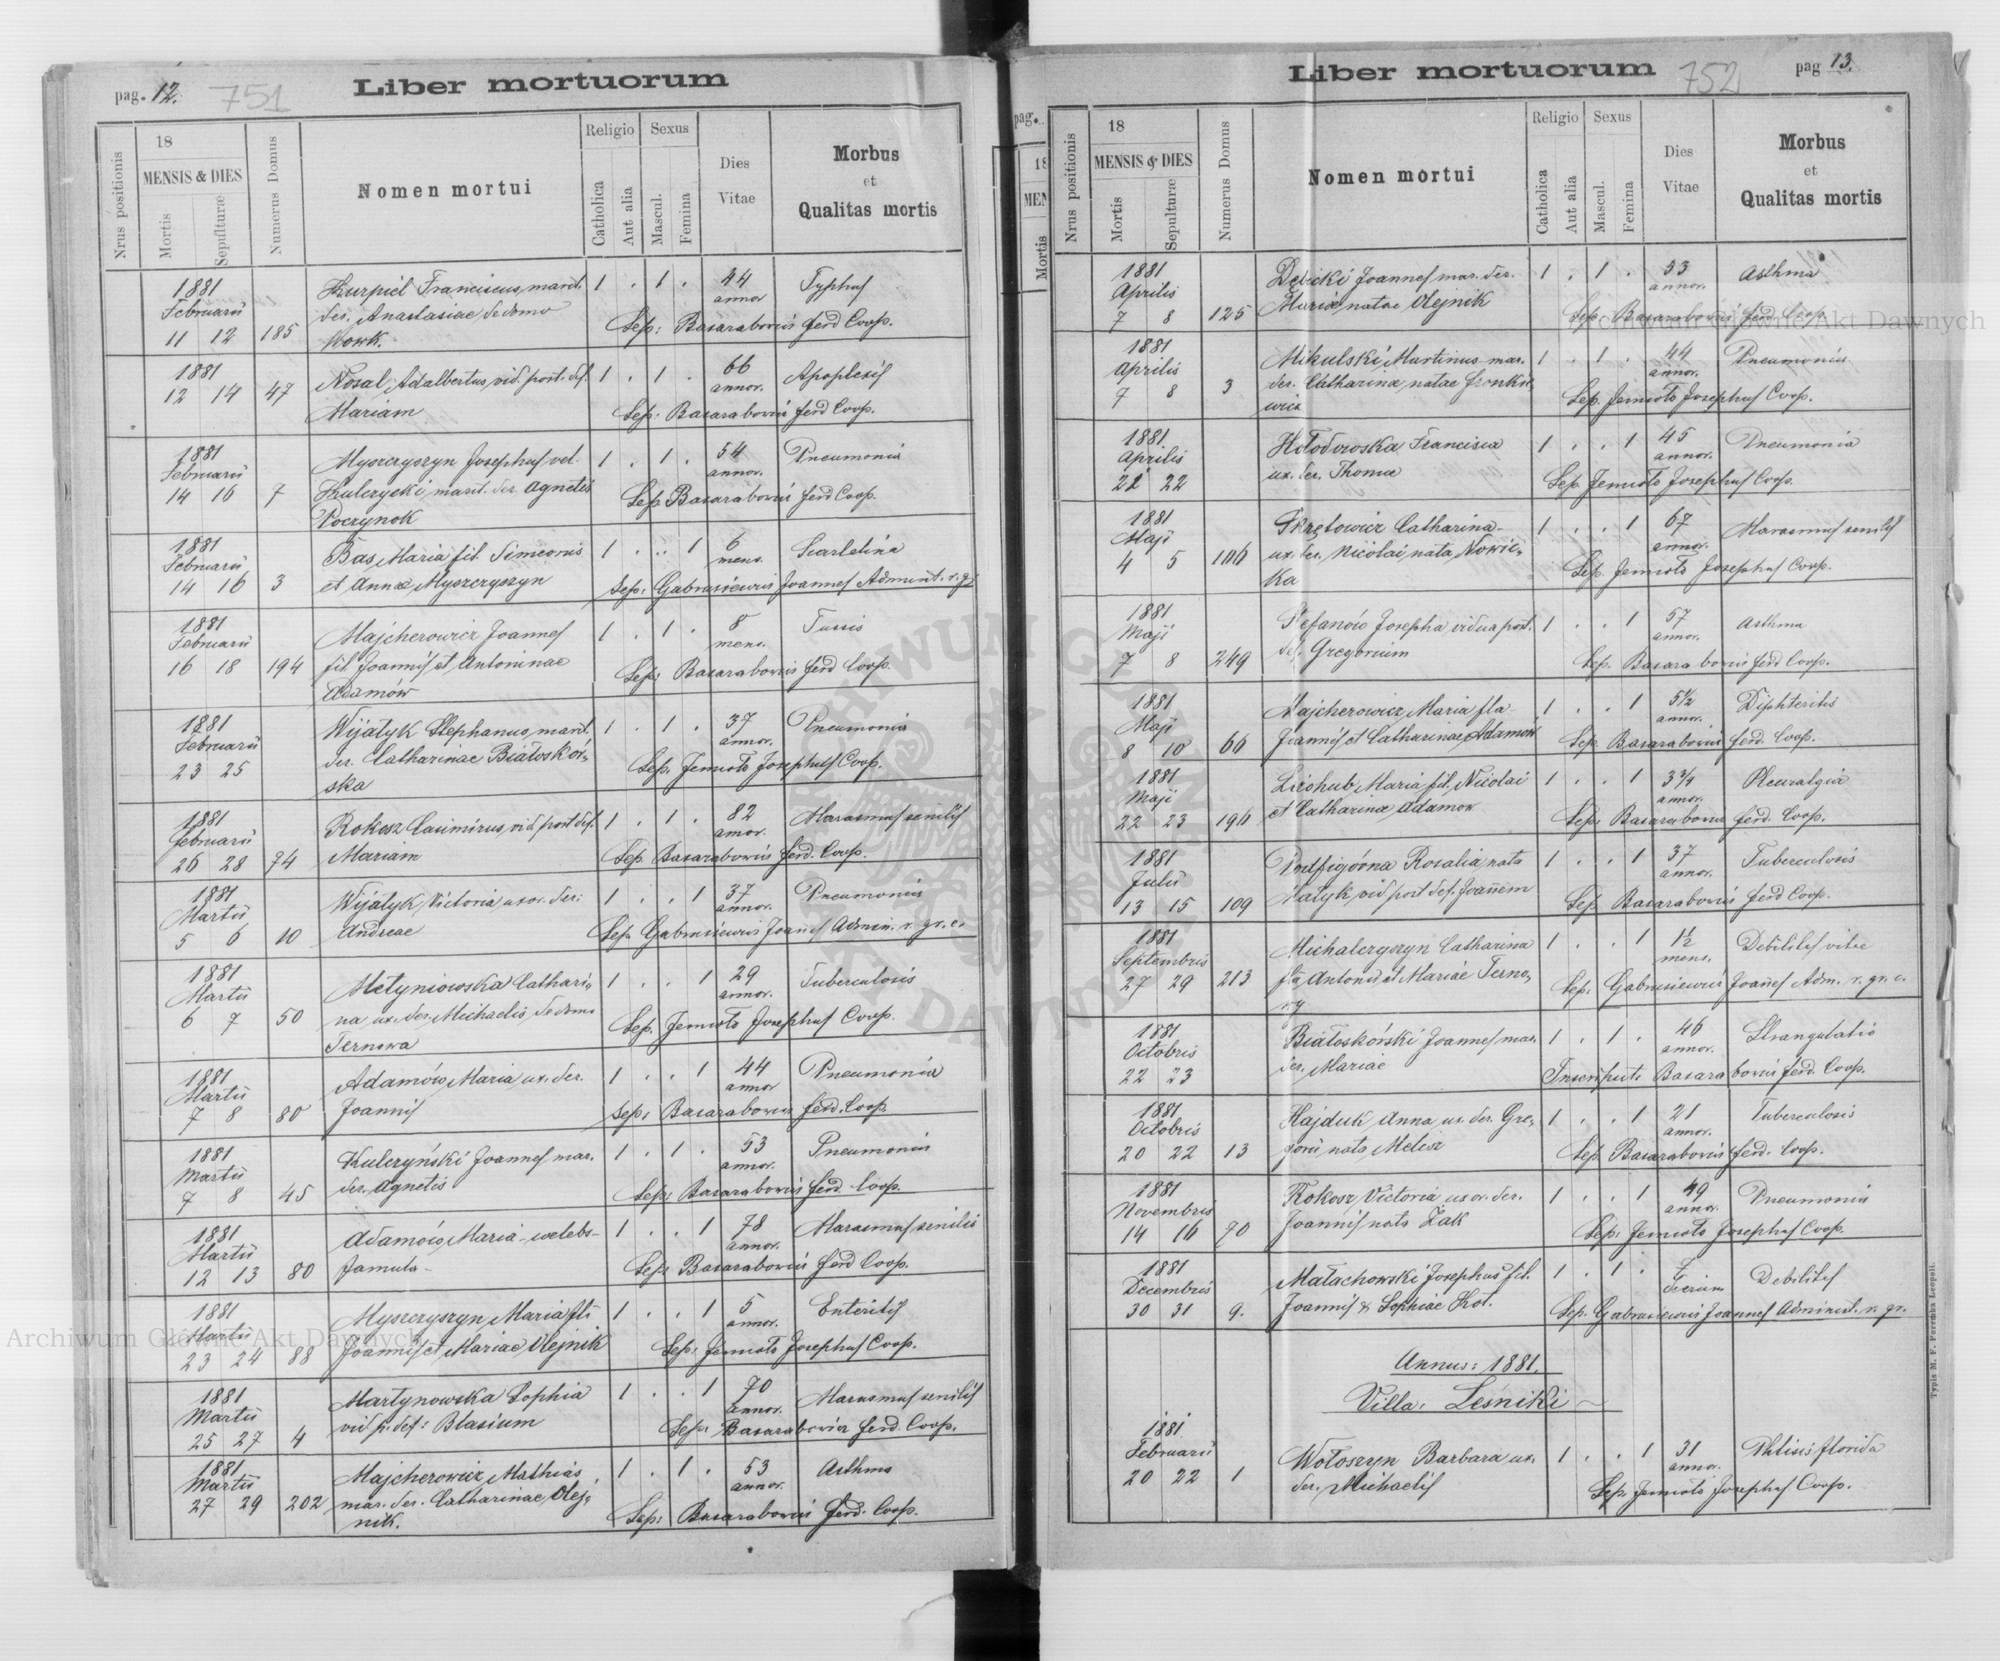 pag. 12.
751
Liber mortuorum
Nrus positionis
18
MENSIS & DIES
Mortis
Sepulturæ
Numerus Domus
Nomen mortui
Religio
Catholica
Aut alia
Sexus
Mascul.
Femina
Dies
Vitae
Morbus
et
Qualitas mortis
1881 Kurpiel Franciscus, marit. 1 . 1 . 44 Typhus
Februarii der. Anastasiae, de domo annor
11 12 185 Wowk. Sep: Basarabowicz ferd Coop.
1881 Nosal, Adalbertus, vid. post. def. 1 . 1 . 66 Apoplexis
12 14 47 Mariam annor. Sep: Basarabowicz ferd Coop.
1881 Myszczyszyn Josephus vel. 1 . 1 . 54 Pneumonia
Februarii Kulczycki, marit. der. Agnetis annor.
14 16 7 Poczynok Sep Basarabowicz ferd Coop.
1881 Bas, Maria fil. Simeonis 1 . . 1 6 Scarletina
Februarii et Annæ Myszczyszyn mens.
14 16 3 Sep: Gabrusiewicz Joannes Administ. r. g.
1881 Majcherowicz Joannes 1 . 1 . 8 Tussis
Februarii fil. Joannis et Antoninae mens.
16 18 194 Adamów Sep: Basarabowicz ferd Coop.
1881 Wijatyk Stephanus, marit. 1 . 1 . 37 Pneumonia
Februarii der. Catharinae Białoskór- annor.
23 25 ska Sep. Jemioło Josephus Coop.
1881 Rokosz Casimirus, vid post def. 1 . 1 . 82 Marasmus senilis
Februarii Mariam annor.
26 28 74 Sep Basarabowicz ferd. Coop.
1881 Wijatyk, Victoria uxor. der: 1 . . 1 37 Pneumonia
Martii Andreae annor.
5 6 10 Sep. Gabrusiewicz Joannes Admin. r. gr. c.
1881 Metyniowska Cathari- 1 . . 1 29 Tuberculosis
Martii na ux. der. Michaelis, de domo annor.
6 7 50 Ternowa Sep. Jemioło Josephus Coop.
1881 Adamów, Maria ux. der. 1 . . 1 44 Pneumonia
Martii Joannis annor
7 8 80 Sep: Basarabowicz ferd. Coop.
1881 Kulczyński Joannes mar. 1 . 1 . 53 Pneumonia
Martii der. Agnetis annor.
7 8 45 Sep: Basarabowicz ferd. Coop.
1881 Adamów, Maria - coelebs- 1 . . 1 78 Marasmus senilis
Martii famula - annor.
12 13 80 Sep: Basarabowicz ferd Coop.
1881 Myszczyszyn Maria fil: 1 . . 1 5 Enteritis
Martii Joannis et Mariae Olejnik annor.
23 24 88 Sep: Jemioło Josephus Coop.
1881 Martynowska Sophia 1 . . 1 70 Marasmus senilis
Martii vid p. def: Blasium annor.
25 27 4 Sep: Basarabowicz ferd. Coop.
1881 Majcherowicz Mathias 1 . 1 . 53 Asthma
Martii mar. der. Catharinae, Olej- annor.
27 29 202 nik. Sep: Basarabowicz ferd. Coop.
pag.
18
MEN
Mortis
Liber mortuorum
752
pag 13.
Nrus positionis
18
MENSIS & DIES
Mortis
Sepulturæ
Numerus Domus
Nomen mortui
Religio
Catholica
Aut alia
Sexus
Mascul.
Femina
Dies
Vitae
Morbus
et
Qualitas mortis
1881 Joannes mar. der. 1 . 1 . 53 Asthma
Aprilis Mariæ, natae Olejnik annor.
7 8 125 Sep: Basarabowicz ferd. Coop.
1881 Mikulski Martinus mar. 1 . 1 . 44 Pneumonia
Aprilis der. Catharinæ, natae annor.
7 8 3 wicz Sep. Jemioło Josephus Coop.
1881 Hołodowska Francisca 1 . . 1 45 Pneumonia
Aprilis ux. der. Thomæ annor.
21 22 Sep Jemioło Josephus Coop.
1881 Skrętowicz Catharina- 1 . . 1 67 Marasmus senilis
Maji ux. der. Nicolai, nata, Nowic- annor.
4 5 106 ka Sep. Jemioło Josephus Coop.
1881 Stefanów Josepha vidua post. 1 . . 1 57 Asthma
Maji def. Gregorium annor.
7 8 249 Sep. Basarabowicz ferd Coop.
1881 Majcherowicz, Maria fla- 1 . . 1 5½ Diphteritis
Maji Joannis et Catharinae, Adamów annor.
8 10 66 Sep. Basarabowicz ferd. Coop.
1881 Maria fil. Nicolai 1 . . 1 3¾ Pleuralgia
Maji et Catharinæ Adamow annor.
22 23 196 Sep. Basarabowicz ferd. Coop.
1881 Podfigórna Rosalia, nata 1 . . 1 37 Tuberculosis
Julii vid post def. Joannem annor.
13 15 109 Sep. Basarabowicz ferd Coop.
1881 Michalczyszyn Catharina 1 . . 1 1½ Debilitas vitæ
Septembris fla Antonii et Mariæ Terno- mens.
27 29 213 Sep. Gabrusiewicz Joañes Adm. r. gr. c.
1881 Białoskórski Joannes mar. 1 . 1 . 46 Strangulatio
Octobris der. Mariae annor.
22 23 Inscripsit. Basarabowicz ferd. Coop.
1881 Hajduk Anna ux. der. Gre- 1 . . 1 21 Tuberculosis
Octobris gorii nata Melesz annor.
20 22 13 Sep. Basarabowicz ferd. Coop.
1881 Rokosz, Victoria uxor. der. 1 . . 1 49 Pneumonia
Novembris Joannis nata Żak annor.
14 16 70 Sep. Jemioło Josephus Coop.
1881 Małachowski Josephus fil. 1 . 1 . 7 Debilitas
Decembris Joannis & Sophiae Kot. dierum
30 31 9. Sep. Gabrusiewicz Joannes Administ. r. gr.
Annus: 1881.
Villa: Lesniki
1881 Wołoszyn Barbara ux. 1 . . 1 31 Phtisis florida
Februarii der. Michaelis annor.
20 22 1 Sep. Jemioło Josephus Coop.
Typis M. F. Poremba Leopoli.
Archiwum Główne Akt Dawnych
Archiwum Główne Akt Dawnych